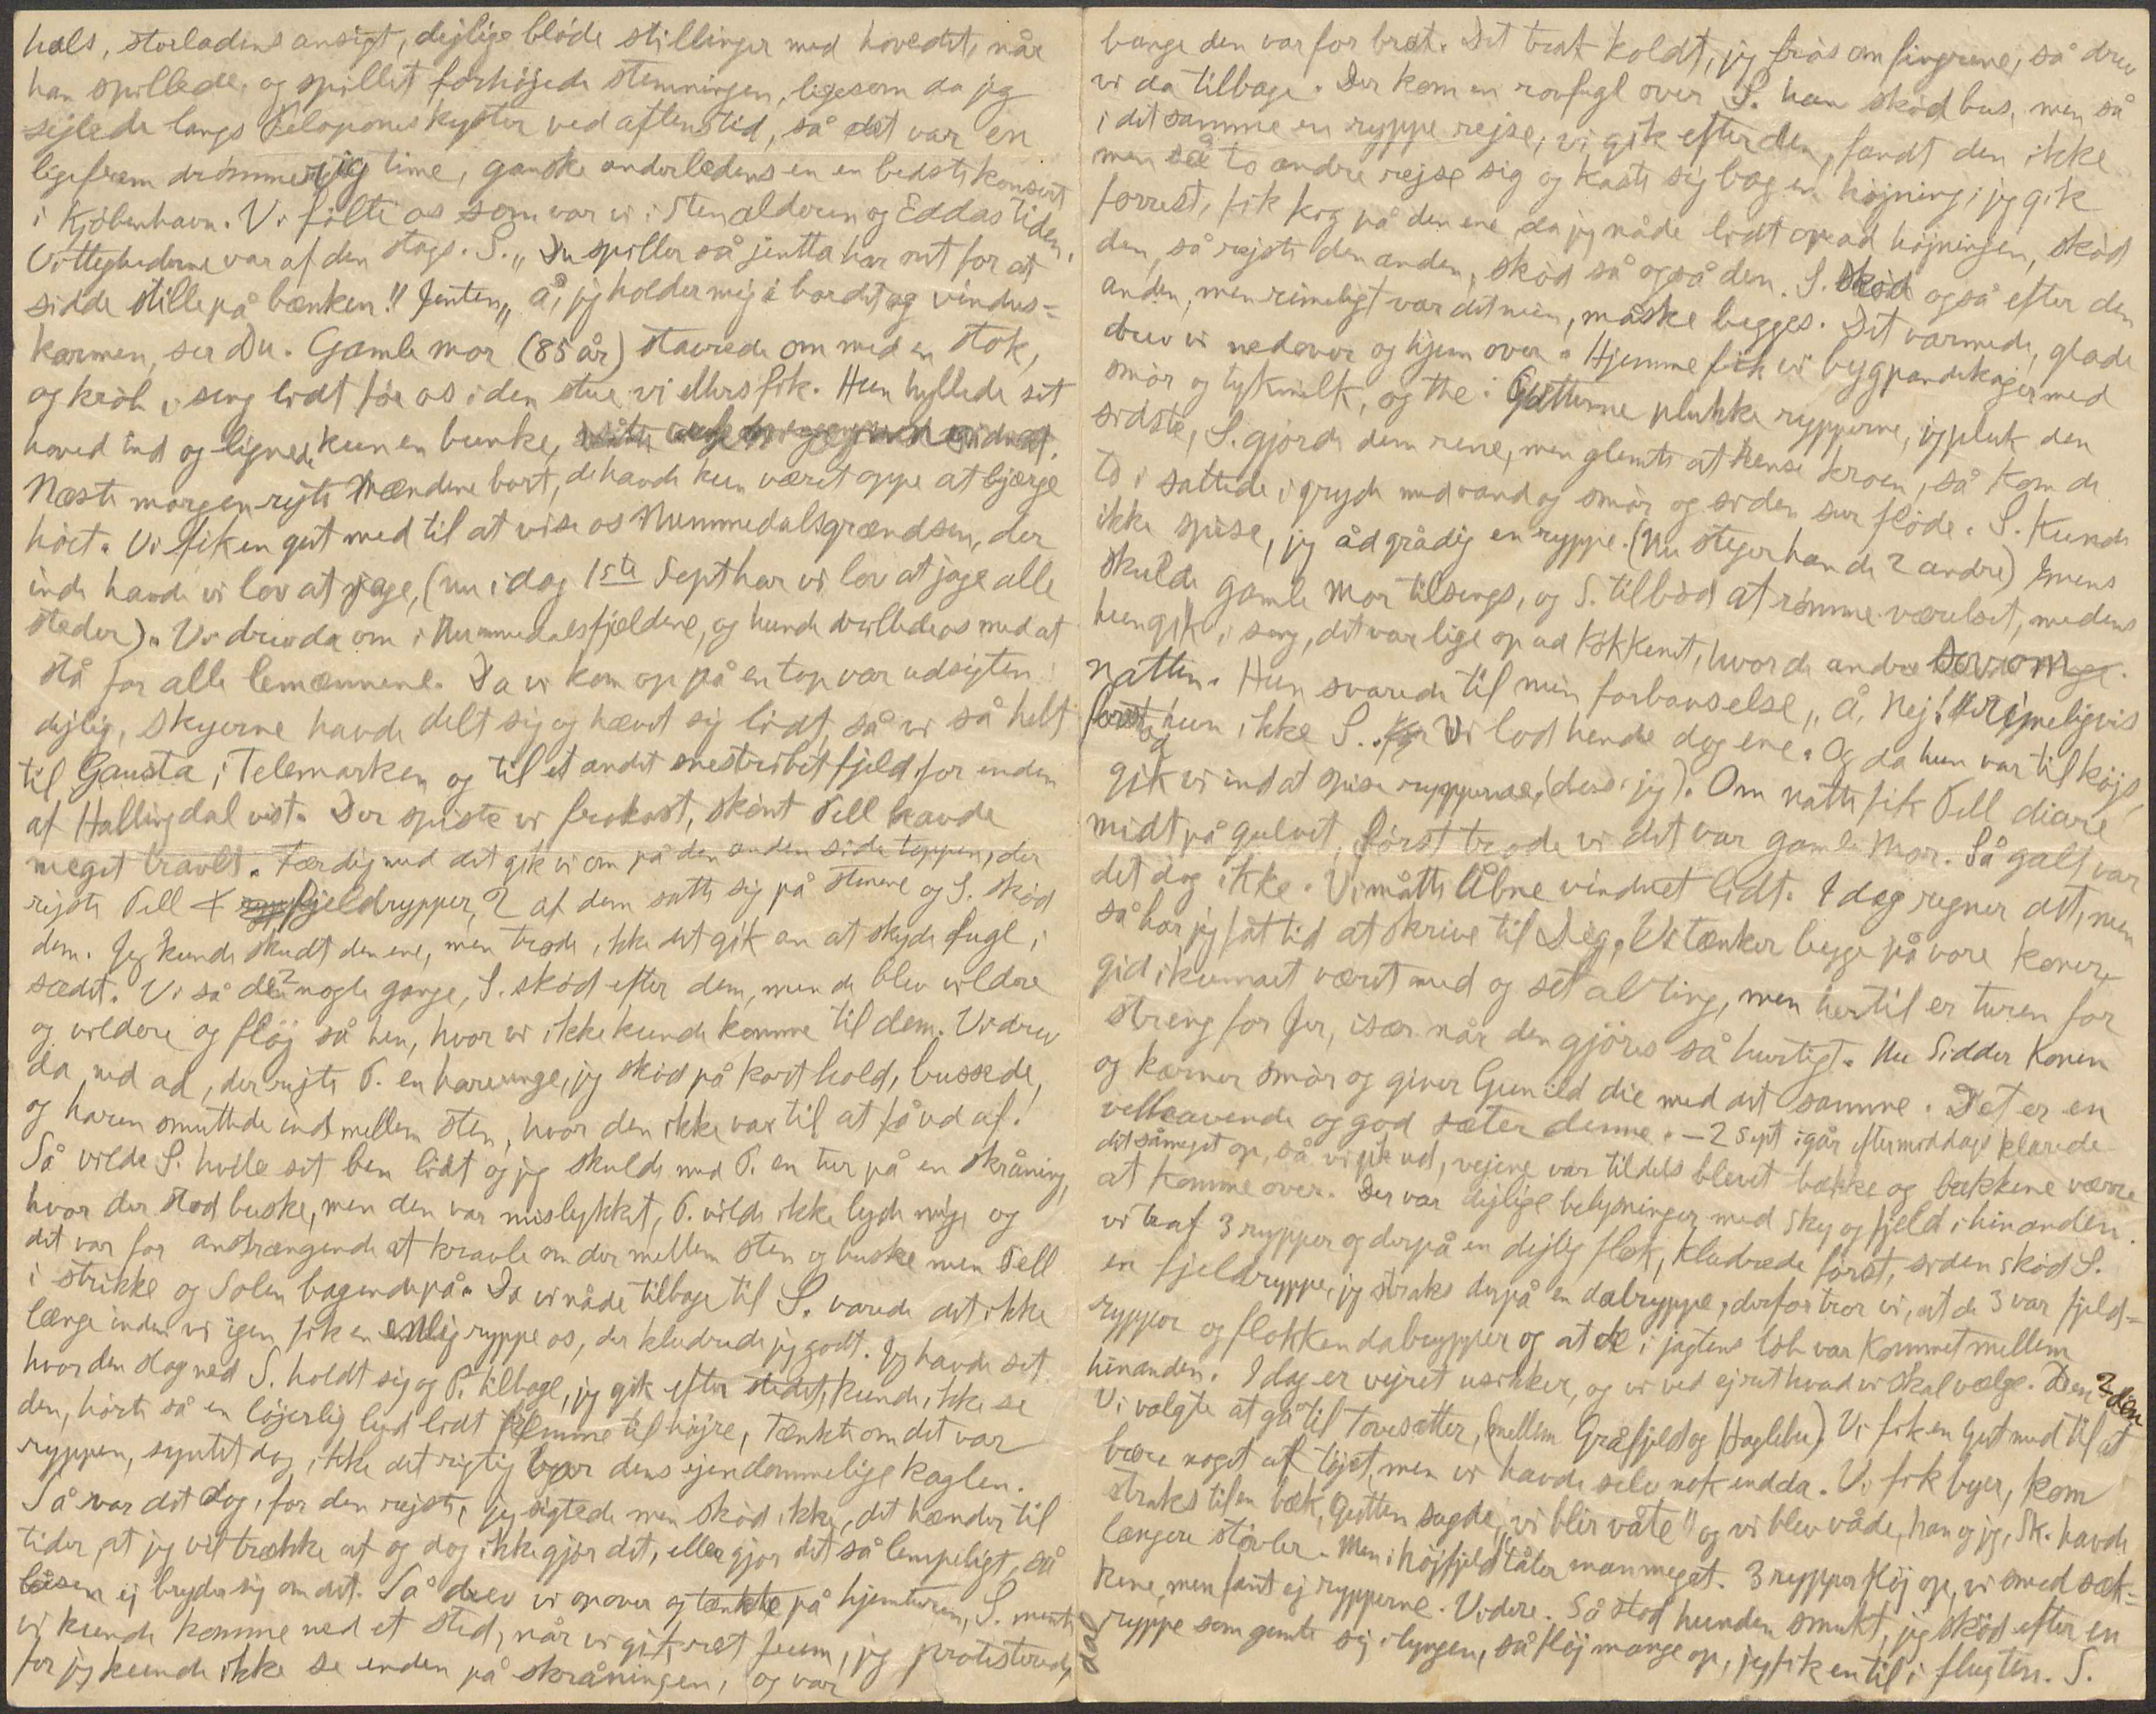 hals, storladens ansigt, dejlige bløde stillinger med hovedet, når
han spillede, og spillet forhøjede stemningen, ligesom da jeg
sejlede langs Peloponeskyster ved aftenstid, så det var en
ligefrem drømmerig time, ganske anderledens en en bedste konsert
i Kjøbenhavn. Vi følte os som var vi i Stenalderen og Eddas tiden.
Vittighederne var af den slags. S. „Du spiller så jentta har ont for at
sidde stille på bænken." Jenten „å, jeg holder mig i bordet og vindus=
karmen, ser Du. Gamle mor (85 år) stavrede om med en stok,
og krøb i seng lidt før os i den stue vi ellers fik. Hun hyllede sit
hoved ind og lignede kun en bunke,
Næste morgen rejste Mændene bort, de havde kun været oppe at bjærge
høet. Vi fik en gut med til at vise os Nummedalsgrændsen, der
inde havde vi lov at jage, (nu i dag 1ste Sept har vi lov at jage alle
steder). Vi drev da om i Nummedalsfjeldene, og hunde drillede os med at
stå for alle lemænnene. Da vi kom op på en top var udsigten
dejlig, skyerne havde delt sig og hævet sig lidt, så vi så helt
til Gausta i Telemarken og til et andet snestribet fjeld for enden
af Hallingdal vist. Der spiste vi frokost, skønt Pell havde
meget travlt. Færdig med det gik vi om på den anden side toppen, der
rejste Pell 4 fjeldrypper, 2 af dem satte sig på stenene og S. skød
dem. Jeg kunde skudt den ene, men trode ikke det gik an at skyde fugl i
sædet. Vi så de 2 nogle gange, S. skød efter dem, men de blev vildere
og vildere og fløj så hen, hvor vi ikke kunde komme til dem. Vi drev
da ned ad, der rejste P. en hareunge, jeg skød på kort hold, bussede,
og haren smuttede ind mellem sten, hvor den ikke var til at få ud af.
Så vilde S. hvile set ben lidt og jeg skulde med P. en tur på en skråning,
hvor der stod buske, men den var mislykket, P. vilde ikke lyde mig og
det var for anstrængende at kravle om der mellem sten og buske men Pell
i strikke og Solen bagendepå. Da vi nåde tilbage til S. varede det ikke
længe inden vi igen fik en enlig ryppe os, der kludrede jeg godt. Jeg havde set
hvor den slog ned S. holdt sig og P. tilbage, jeg gik efter stedet, kunde ikke se
den, hørte så en løjerlig lyd lidt fremme til højre, tænkte om det var
ryppen, syntet dog ikke det rigtig var dens ejendommelige kaglen.
Så var det dog, for den rejste, jeg sigtede men skød ikke, det hænder til
tider, at jeg vil trække af og dog ikke gjør det, eller gjør det så lempeligt, så
bøsen ej bryder sig om det. Så drev vi opover og tænkte på hjemturen, S. mente
vi kunde komme ned et sted, når vi gik ret frem, jeg protisterede,
for jeg kunde ikke se enden på skråningen, og var
bange den var for brat. Det trak koldt, jeg frøs om fingrene, så drev
vi da tilbage. Der kom en rovfugl over S. han skød bus, men så
i det samme en ryppe rejse, vi gik efter den, fandt den ikke
men så to andre rejse sig og kaste sig bag en højning; jeg gik
forrest, fik kig på den ene da jeg nåde lidt op ad højningen, skød
den, så rejste den anden, skød så også den. S. skød også efter den
anden, men rimeligt var det min, måske begges. Det varmede, glade
drev vi nedover og hjem over. Hjemme fik vi bygpandekager med
smør og tykmelk, og the. Gutterne plukke rypperne, jeg pluk den
sidste, S. gjorde dem rene, men glemte at rense kroen, så kom de
to i saltede i gryde med vand og smør og siden sur fløde. S. kunde
ikke spise, jeg åd grådig en ryppe. (Nu steger han de 2 andre) Imens
skulde gamle mor tilsengs, og S. tilbød at rømme værelset, medens
hun gik i seng, det var lige op ad køkkenet, hvor de andre sov om
natten. Hun svarede til min forbavselse, „å, Nej!" Rimeligvis
forstod hun ikke S. Vi lod hende dog ene. Og da hun var til køjs,
gik vi ind at spise rypperne, (dvs. jeg). Om natte fik Pell diaré
midt på gulvet, først trode vi det var gamle Mor. Så galt var
det dog ikke. Vi måtte åbne vinduet lidt. I dag regner det, men
så har jeg fåt tid at skrive til Dig. Vi tænker begge på vore koner
gid i kunnet været med og set al ting, men hertil er turen for
streng for Jer, især når den gjøres så hurtigt. Nu sidder Konen
og kærner smør og giver Gunild die med det samme. Det er en
velhavende og god sæter denne. – 2 Sept igår eftermiddags klarede
det såmeget op, så vi gik ud, vejene var tildels blevet bække og bækkene værre
at komme over. Der var dejlige belysninger med sky og fjeld i hinanden.
vi traf 3 rypper og derpå en dejlig flok, kludrede først, siden skød S.
en fjeldryppe, jeg straks derpå en dalryppe, derfor tror vi, at de 3 var fjeld=
rypper og flokken dalrypper og at de i jagtens løb var kommet mellem
hinanden. I dag er vejret usikker, og vi ved ej ret hvad vi skal vælge. Den 2den
Vi valgte at gå til Tovesætter, (mellem Gråfjeld og Haglebu) Vi fik en Gut med til at
bære noget af tøjet, men vi havde selv nok endda. Vi fik byer, kom
straks til en bæk, Gutten sagde, „vi blir våte" og vi blev våde, han og jeg, Sk. havde
længere støvler. Men i højfjeld tåler man meget. 3 rypper fløj op, vi smed sæk=
kene, men fant ej rypperne. Videre. Så stod hunden smukt, jeg skød efter en
dal
ryppe som gemte sig i lyngen, så fløj mange op, jeg fik en til i flugten. S.